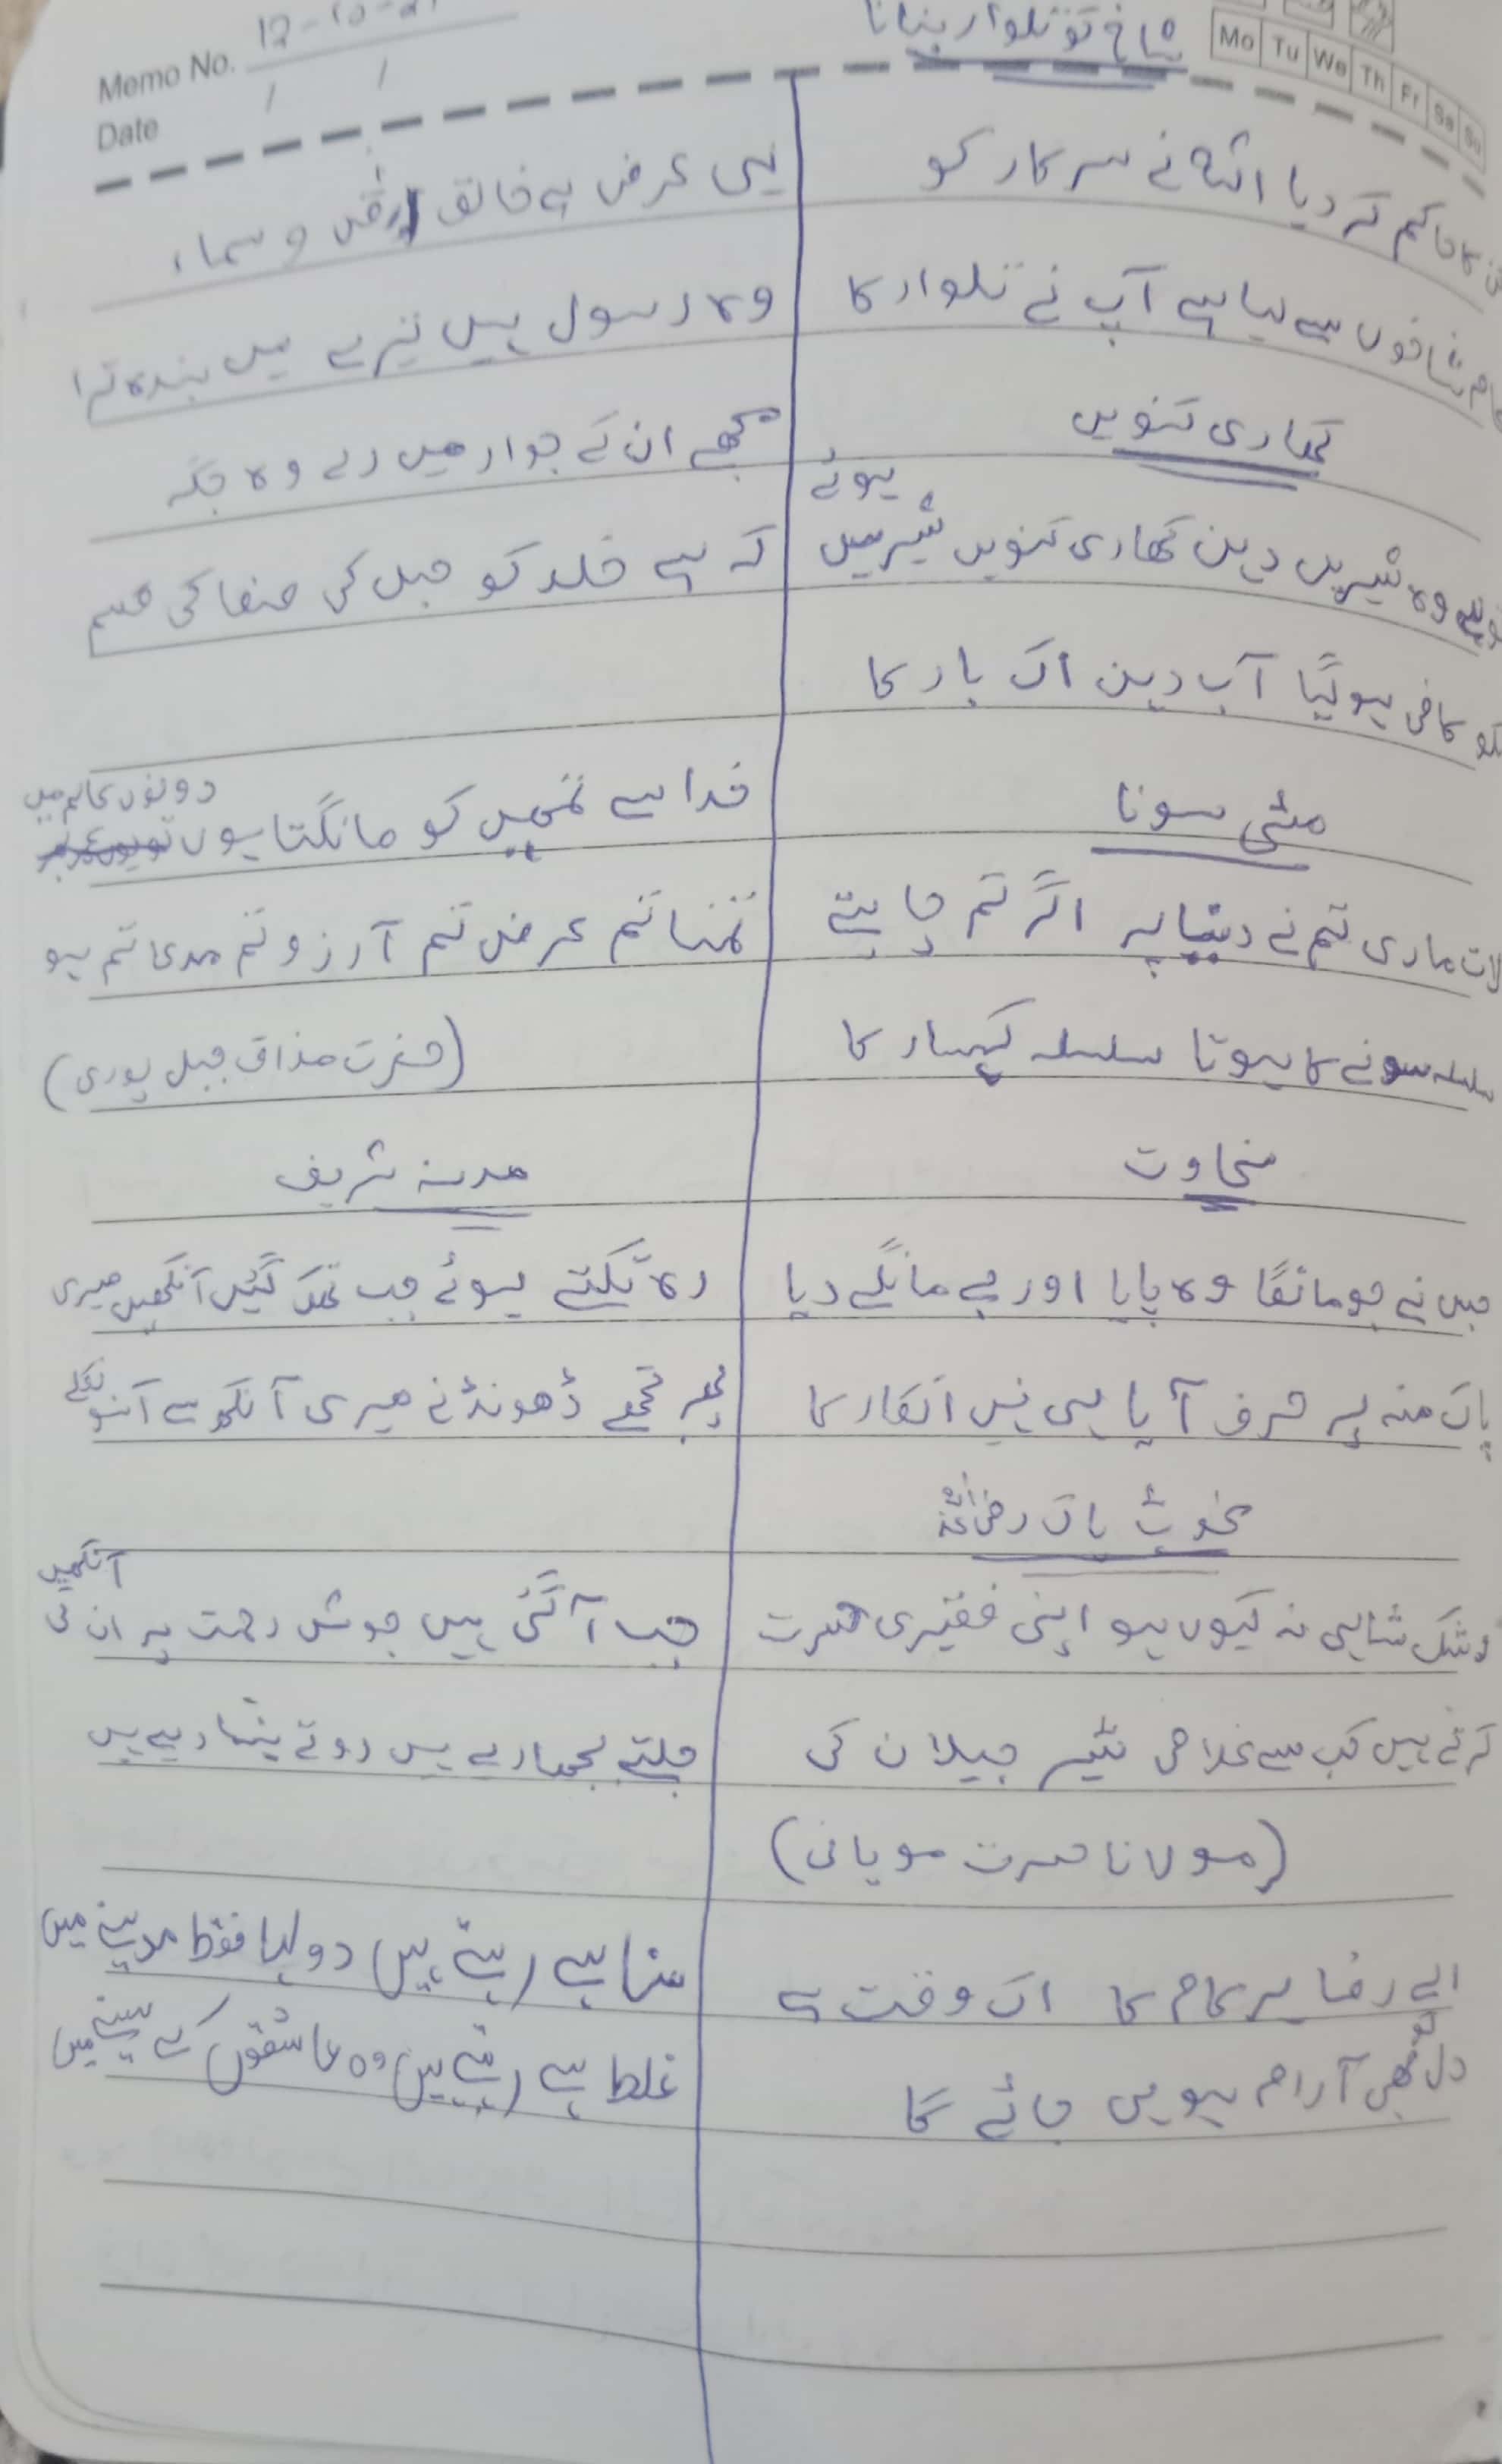 Memo No. 12-10-21
Date / /
Mo Tu We Th Fr Sa Su
شاخ کو تلوار بنانا
کا حاکم کر دیا اللہ نے سرکار کو
کام شاخوں سے لیا ہے آپ نے تلوار کا
کھاری کنویں
وہ شیریں دہن کھاری کنویں شیریں ہوئے
کو کافی ہو گیا آب دہن اک بار کا
مٹی سونا
لات ماری تم نے دنیا پر اگر تم چاہتے
سلسلہ سونے کا ہوتا سلسلہ کہسار کا
سخاوت
جس نے جو مانگا وہ پایا اور بے مانگے دیا
پاک منہ پر حرف آیا ہی نہیں انکار کا
غوث پاک رضی اللہ عنہ
رشک شاہی نہ کیوں ہو اپنی فقیری حسرت
کرتے ہیں کب سے غلامی شیر جیلان کی
(مولانا حسرت موہانی)
اے رضا ہر کام کا اک وقت ہے
دل کو بھی آرام ہو ہی جائے گا
یہی عرض ہے خالق ارض و سماء
وہ رسول ہیں تیرے میں بندہ ترا
مجھے ان کے جوار میں دے وہ جگہ
کہ ہے خلد کو جس کی صفا کی قسم
خدا سے تمہیں کو مانگتا ہوں دونوں عالم میں
تمنا تم عرض تم آرزو تم مدعا تم ہو
(حضرت مذاق جبل پوری)
مدینہ شریف
رہ تکتے ہوئے جب تھک گئیں آنکھیں میری
پھر تجھے ڈھونڈنے میری آنکھ سے آنسو نکلے
جب آ گئی ہیں جوش رحمت پہ ان کی آنکھیں
جلتے بجھا دیے ہیں روتے ہنسا دیے ہیں
سنا ہے رہتے ہیں دولہا فقط مدینے میں
غلط ہے رہتے ہیں وہ عاشقوں کے سینے میں